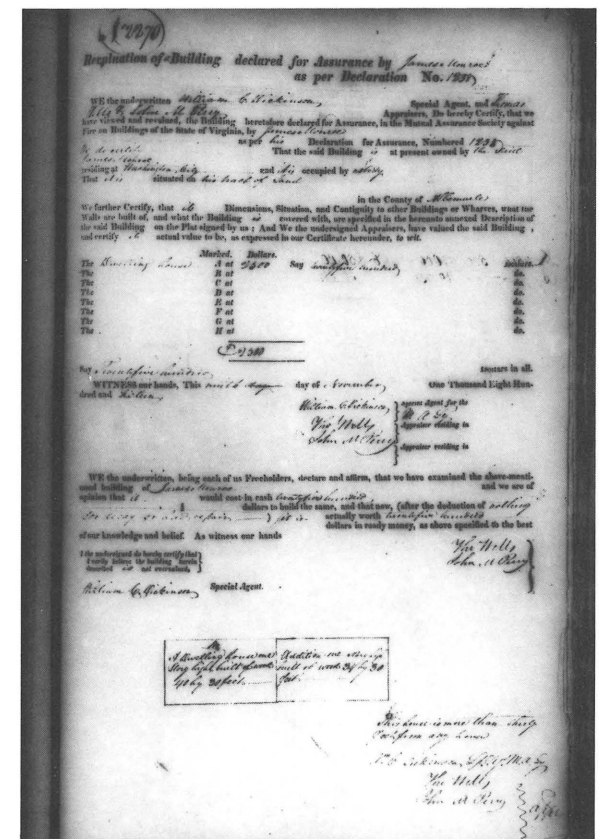 12270
Revaluation of Building declared for Assurance by James Monroe
as per Declaration No. 1231
WE the underwritten William C. Dickinson Special Agent, and Thomas
Wells & John M. Perry Appraisers, Do hereby Certify, that we
have viewed and revalued, the Building heretofore declared for Assurance, in the Mutual Assurance Society against
Fire on Buildings of the State of Virginia, by James Monroe
as per his Declaration for Assurance, Numbered 1231
That the said Building is at present owned by the Said
James Monroe
residing at Washington City and is occupied by
That it is situated on his tract of Land
in the County of Albemarle
We further Certify, that it Dimensions, Situation, and Contiguity to other Buildings or Wharves, what the
Walls are built of, and what the Building is covered with, are specified in the hereunto annexed Description of
the said Building on the Plat signed by us; And We the undersigned Appraisers, have valued the said Building,
and certify it actual value to be, as expressed in our Certificate hereunder, to wit.
Marked. Dollars.
The Dwelling house A at 2500 Say twentyfive hundred Dollars.
The B at do.
The C at do.
The D at do.
The E at do.
The F at do.
The G at do.
The H at do.
2500
Say Twentyfive hundred Dollars in all.
WITNESS our hands, This day of November One Thousand Eight Hun-
dred and
William C. Dickinson Agent for the
M A Sy
Tho Wells Appraiser residing in
John M Perry Appraiser residing in
WE the underwritten, being each of us Freeholders, declare and affirm, that we have examined the above-menti-
oned building of James Monroe and we are of
opinion that it would cost in cash twentyfive hundred
dollars to build the same, and that now, (after the deduction of nothing
for decay or bad repair) it is actually worth twentyfive hundred
dollars in ready money, as above specified to the best
of our knowledge and belief. As witness our hands
Tho Wells
John M Perry
I the undersigned do hereby certify that
I verily believe the building herein
described is not overvalued,
William C. Dickinson Special Agent.
A
A Dwelling house one
Story high built of wood
40 by 30 feet
Addition one Story
built of wood 34 by 30
feet
This house is more than thirty
feet from any house
Wm C Dickinson Sp Ag M A Sy
Tho Wells
John M Perry